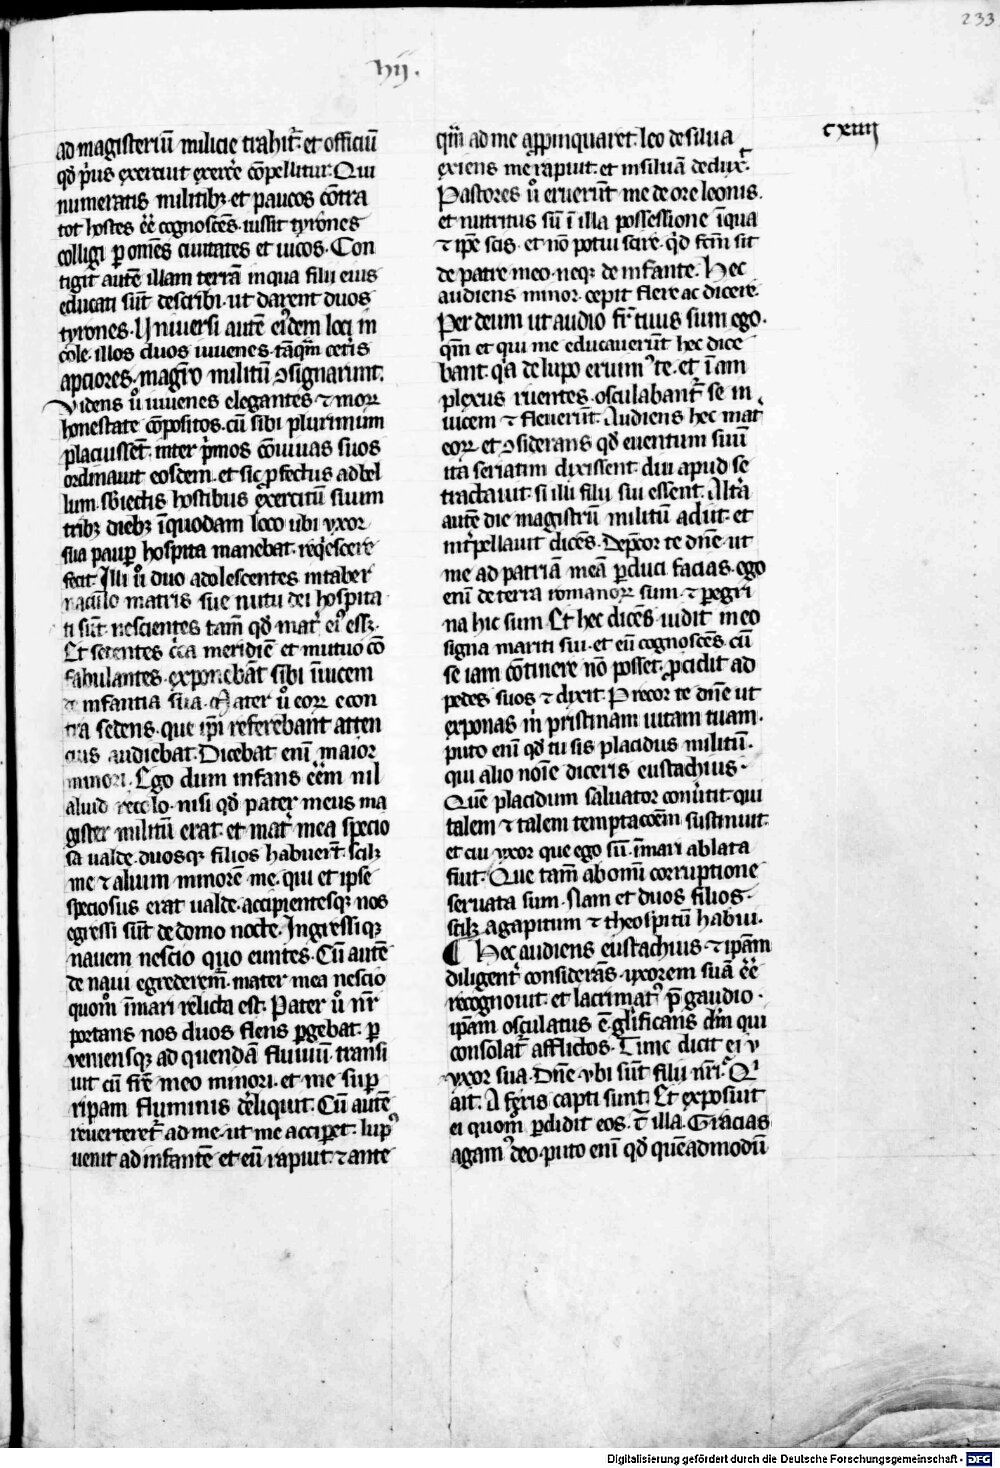 233
hij.
cxiiij
ad magisteriū milicie trahit̄. et officiū
qd̄ p̄us exercuit exer̄ce cōpellitur. Qui
numeratis militibꝫ et paucos cōtra
tot hostes eē̄ cognoscēs. iussit tyrones
colligi ꝑ omēs ciuitates et uicos. Con
tigit autē illam terrā in qua filii eius
educati sūt describi. ut darent duos
tyrones. Uniuersi autē eiꝰdem loci in
cole. illos duos iuuenes. tāqm̄ cet̄is
apciores. magr̄o militū ꝯsignarunt.
Videns u̓ iuuenes elegantes ⁊ moꝝ
honestate cōpositos. cū sibi plurimum
placuisset̄. inter p̄mos cōuiuas suos
ordinauit eosdem. et sic ꝓfectus ad bel
lum. sb̄iectis hostibus exercitū suum
tribꝫ diebꝫ ī quodam loco ubi uxor
sua pauꝑ hospita manebat. reqͥescere
fecit. Illi u̓ duo adolescentes in taber
naculo matris sue nutu dei hospita
ti sūt. nescientes tam̄ qd̄ mat̄ eiꝰ essꝫ.
Et sedentes cͥca meridiē et mutuo cō
fabulantes. exponebāt sibi īuicem
de infantia sua. Mater u̓ eoꝝ e con
tra sedens. que ip̄i referebant atten
cius audiebat. Dicebat enī maior
minori. Ego dum infans eēm nil
aliud recolo. nisi qd̄ pater meus ma
gister militū erat. et mat̄ mea specio
sa ualde. duosqꝫ filios habuer̄t. scilꝫ
me ⁊ alium minorē me. qui et ipse
speciosus erat ualde. accipientesqꝫ nos
egressi sūt de domo nocte. Ingressiqꝫ
nauem nescio quo euntes. Cū autē
de naui egrederem̄. mater mea nescio
quom̊ ī mari relicta est. Pater u̓ nr̄
portans nos duos flens ꝑgebat. ꝑ
ueniensqꝫ ad quendā fluuiū. transi
uit cū fr̄e meo minori. et me suꝑ
ripam fluminis dēliquit. Cū autē
reuerteret̄ ad me. ut me acciꝑet. lupꝰ
uenit ad infantē et eū rapuit. ⁊ ante
qm̄ ad me apꝓinquaret. leo de silua
exiens me rapuit. et in siluā deduxt.
Pastores u̓ eruerūt me de ore leonis.
et nutritus sū ī illa possessione ī qua
⁊ ip̄e scis. et nō potui scire. qͥd fc̄m sit
de patre meo. neqꝫ de infante. Hec
audiens minor. cepit flere ac dicere.
Per deum ut audio fr̄ tuus sum ego.
qm̄ et qui me educauerūt hec dice
bant. qͥa de lupo eruimꝰ te. et ī am
plexus ruentes. osculabant̄ se in
uicem ⁊ fleuerūt. Audiens hec mat̄
eoꝝ. et ꝯsiderans qd̄ euentum suū
ita seriatim dixissent. diu apud se
tractauit. si illi filii sui essent. Alt̄a
autē die magistrū militū adiit. et
int̄pellauit dicēs. Dep̄cor te dn̄e. ut
me ad patriā meā ꝑduci facias. ego
enī de terra romanoꝝ sum. ⁊ ꝑegri
na hic sum. Et hec dicēs. uidit in eo
signa mariti sui. et eū cognoscēs. cū
se iam cōtinere nō posset. ꝓcidit ad
pedes suos ⁊ dixit. Precor te dn̄e ut
exponas in̄ pristinam uitam tuam.
puto enī qd̄ tu sis placidus militū.
qui alio noīe diceris eustachius.
Quē placidum saluator conūtit. qui
talem ⁊ talem temptacōem sustinuit.
et cui uxor que ego sū. ī mari ablata
fuit. Que tam̄ ab omni corruptione
seruata sum. Nam et duos filios.
scilꝫ agapitum ⁊ theospitū habui.
¶ Hec audiens eustachius. ⁊ ip̄am
diligent̄ considerās. uxorem suā eē̄
recognouit. et lacrimatꝰ p̄ gaudio.
ip̄am osculatus ē. gl̄ificans dm̄ qui
consolat̄ afflictos. Tunc dicit ei u
uxor sua. Dn̄e ubi sūt filii nr̄i. Qͥ
ait. A feris capti sunt. Et exposuit
ei quom̊ ꝑdidit eos. Cͥ illa. Gracias
agamꝰ deo. puto enī qd̄ quēadmodū
Digitalisierung gefördert durch die Deutsche Forschungsgemeinschaft - DFG